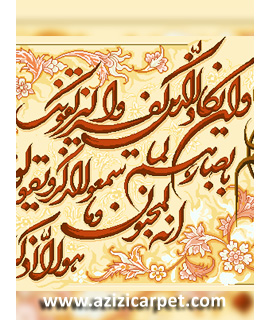 وان یکاد الذین کفروا لیزلقونک
بابصارهم لما سمعوا الذکر ویقولو
انه لمجنون وما
هو الا ذکر
www.azizicarpet.com